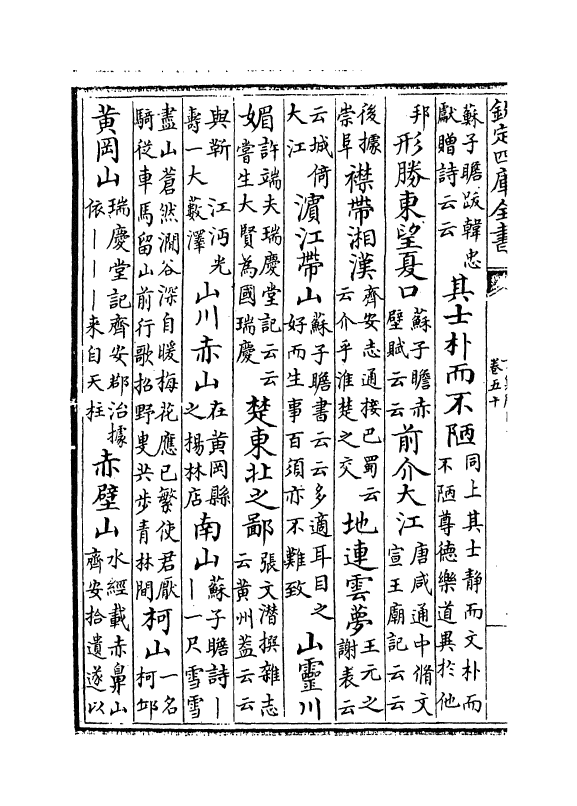 欽定四庫全書
卷五十
蘇子瞻跋韓忠
獻贈詩云云
其士朴而不陋
同上其士静而文朴而
不陋尊德樂道異於他
邦
形勝東望夏口
蘇子瞻赤
壁賦云云
前介大江
唐咸通中脩文
宣王廟記云云
後據
崇阜
襟帶湘漢
齊安志通接巴蜀云
云介乎淮楚之交
地連雲夢
王元之
謝表云
云城倚
大江
濵江帶山
蘇子瞻書云云多適耳目之
好而生事百須亦不難致
山靈川
媚許端夫瑞慶堂記云云
女嘗生大賢為國瑞慶
楚東北之鄙
張文潜撰雜志
云黄州葢云云
與靳 江沔光
壽一大藪澤
山川赤山
在黄岡縣
之楊林店
南山
蘇子瞻詩丨
丨一尺雪雪
盡山蒼然澗谷深自暖梅花應已繁使君厭
騎從車馬留山前行歌招野叟共步青林間
柯山
一名
柯邱
黄岡山
瑞慶堂記齊安郡治據
依丨丨丨来自天柱
赤壁山
水經載赤鼻山
齊安拾遺遂以